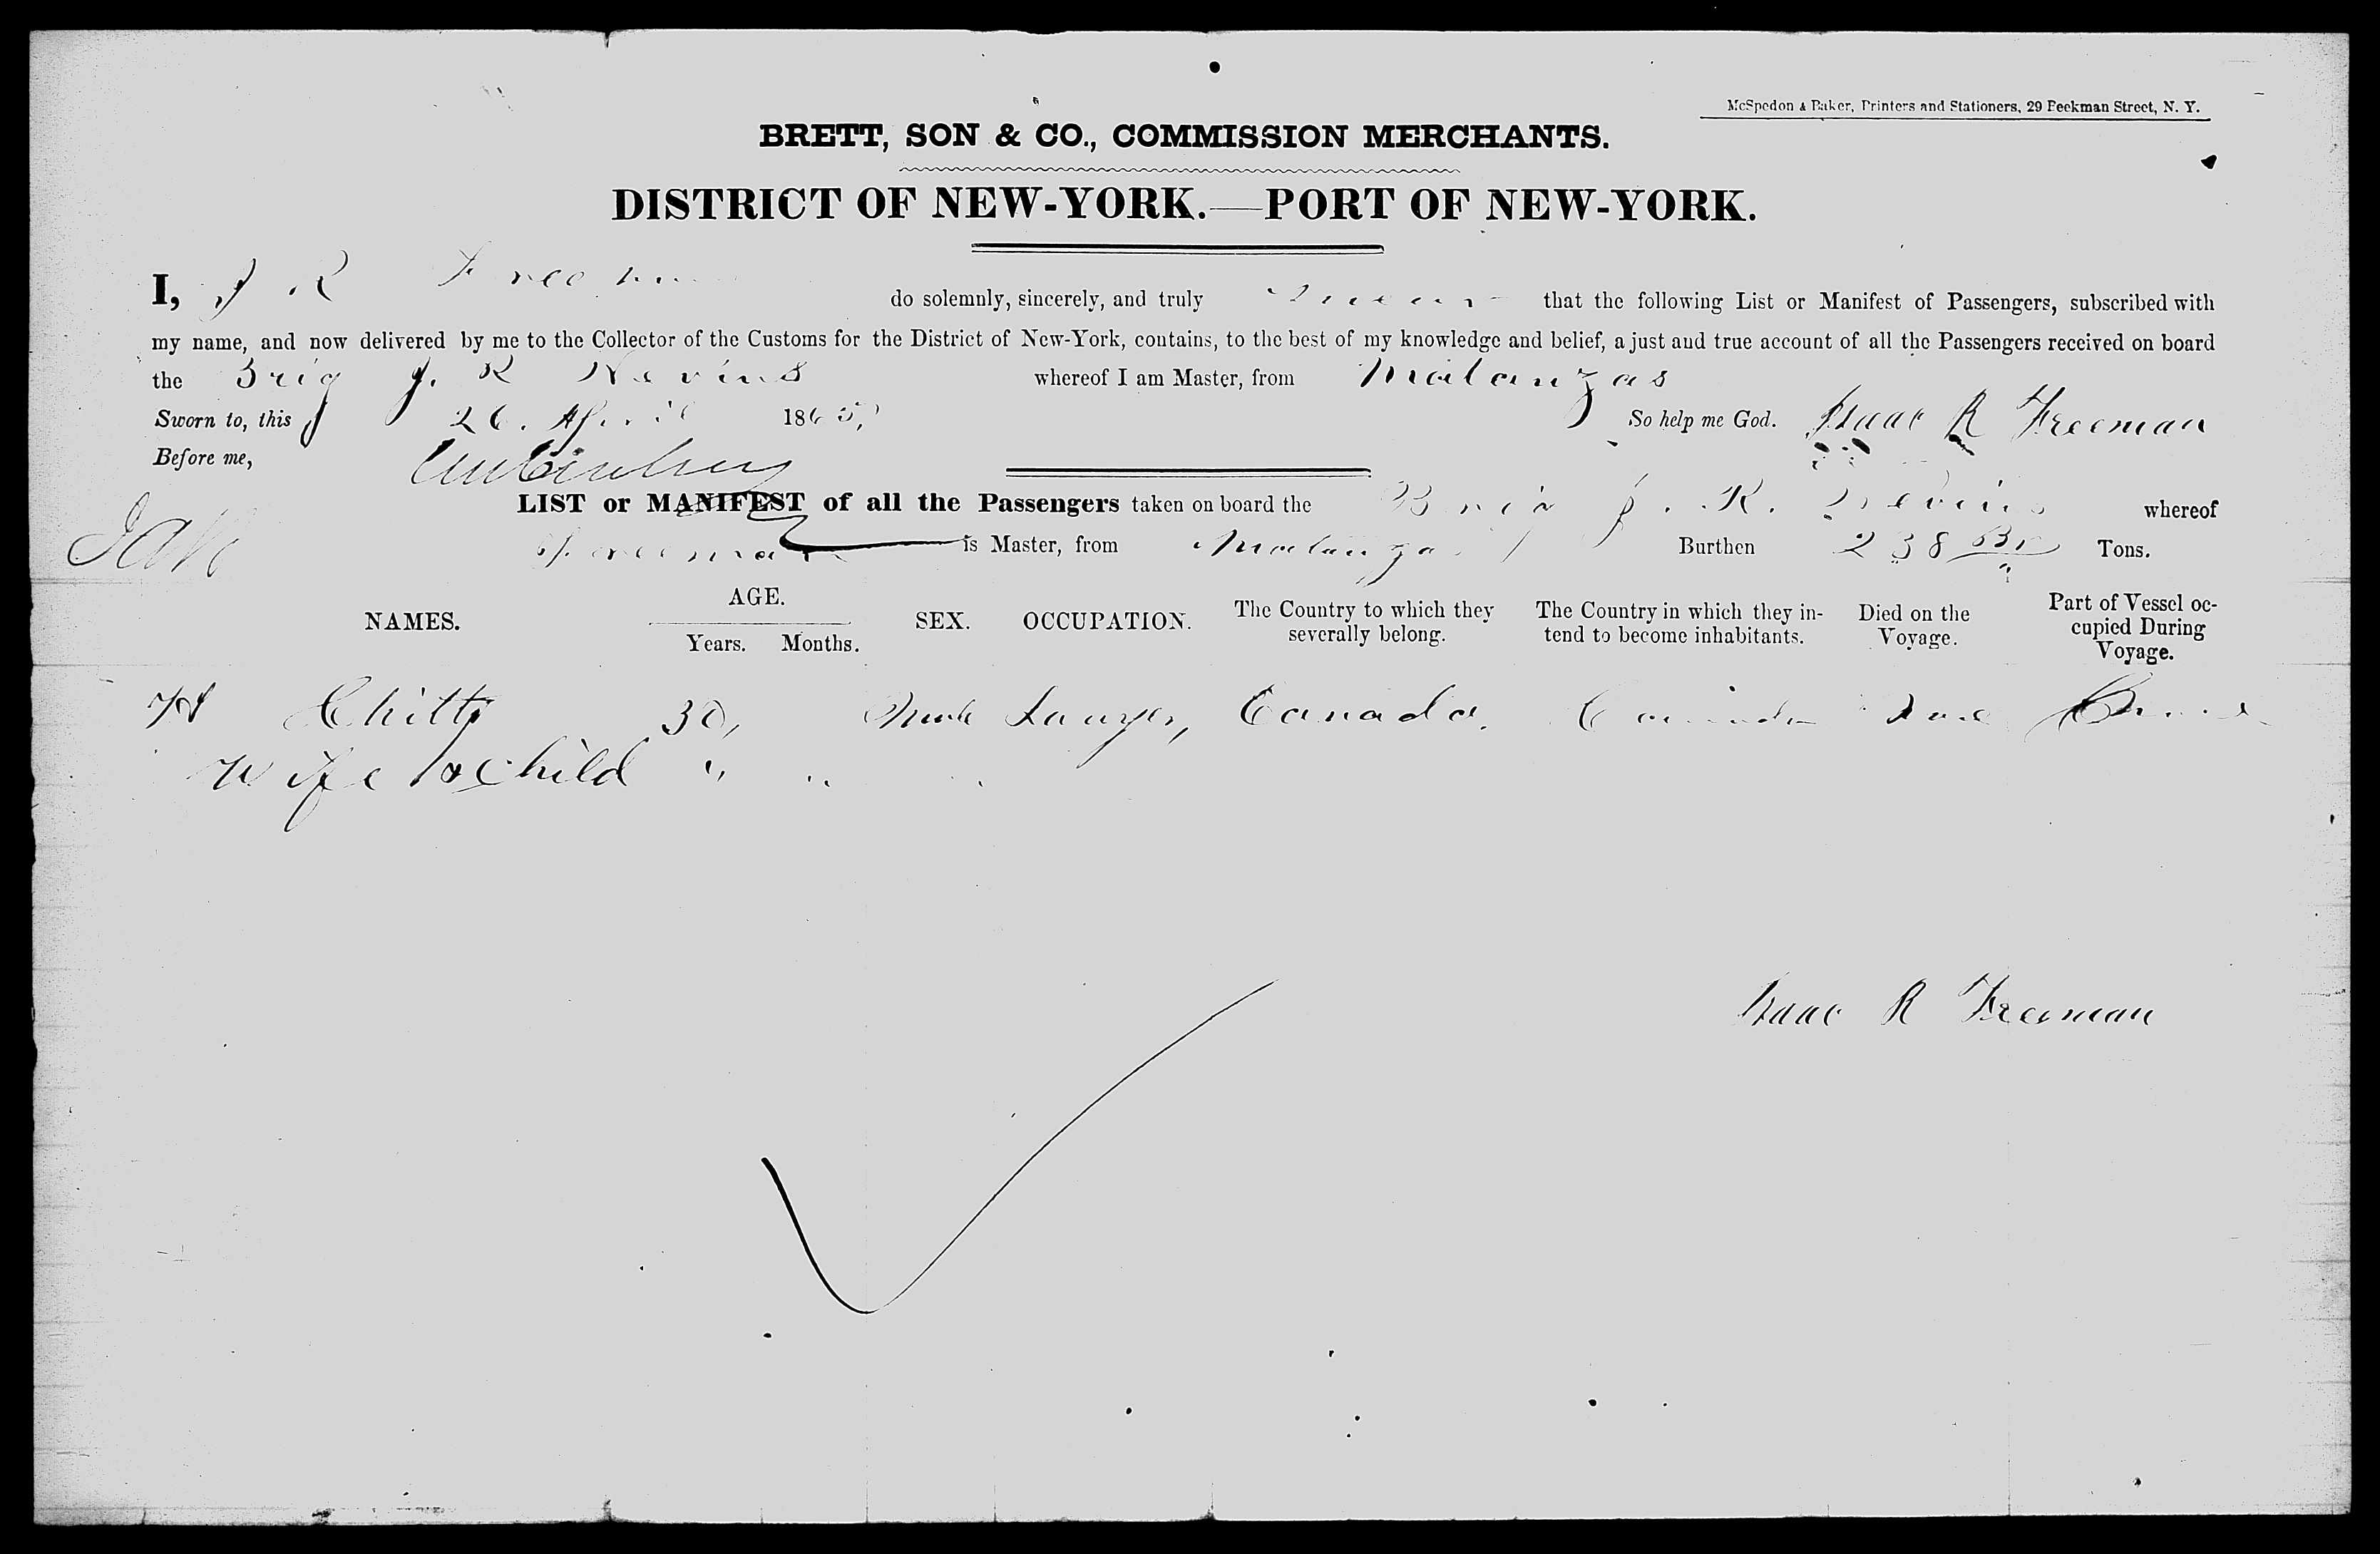 McSpedon & Baker, Printers and Stationers, 29 Beekman Street, N. Y.
BRETT, SON & CO., COMMISSION MERCHANTS.
DISTRICT OF NEW-YORK.—PORT OF NEW-YORK.
I, I R Freeman do solemnly, sincerely, and truly swear that the following List or Manifest of Passengers, subscribed with
my name, and now delivered by me to the Collector of the Customs for the District of New-York, contains, to the best of my knowledge and belief, a just and true account of all the Passengers received on board
the Brig J. R Nevins whereof I am Master, from Matanzas
Sworn to, this 26. April 1865, So help me God. Isaac R Freeman
Before me,
LIST or MANIFEST of all the Passengers taken on board the Brig J. R. Nevins whereof
Freeman is Master, from Matanzas Burthen 238 Tons.
NAMES. AGE. Years. Months. SEX. OCCUPATION. The Country to which they severally belong. The Country in which they intend to become inhabitants. Died on the Voyage. Part of Vessel occupied During Voyage.
Chitty 30, Male Lawyer, Canada. Canada
Wife & child " "
Isaac R Freeman